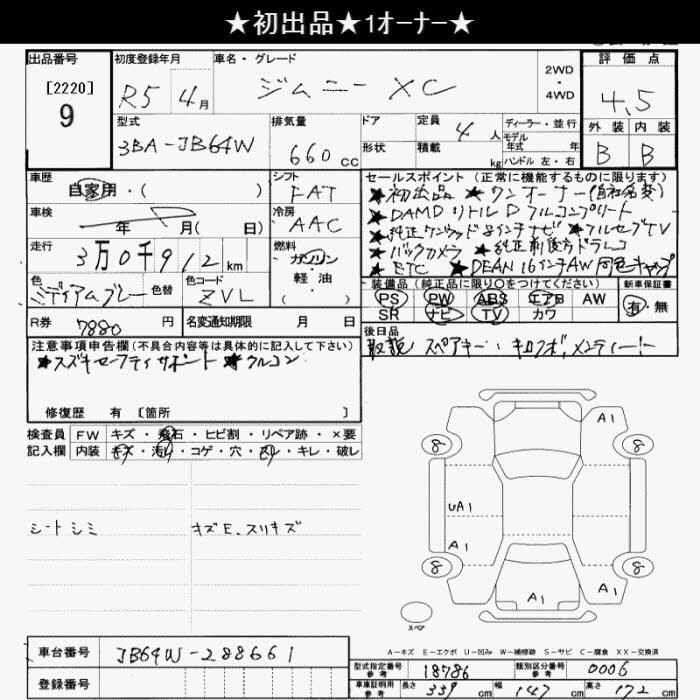 ★初出品★1オーナー★
出品番号 初度登録年月 車名・グレード 評価点
[2220]
9
R5 4月 ジムニー XC 2WD・4WD 4,5
型式 排気量 ドア 定員 4人 ディーラー・並行 外装 内装
3BA-JB64W 660cc 形状 積載 kg モデル年式 年 ハンドル 左・右 B B
車歴 シフト セールスポイント (正常に機能するものに限ります)
自家用・( ) FAT ★初出品 ★ワンオーナー(自社名変)
車検 冷房 ★DAMD リトルD フルコンプリート
年 月( 日) AAC ★純正ケンウッド8インチナビ ★フルセグTV
走行 燃料 ★バックカメラ ★純正前後方ドラレコ
3万0千912km ガソリン 軽・油 ★ETC ★DEAN 16インチAW 同色キャップ
色 色替 色コード 装備品 (純正品に限り○をつけてください) 新車保証書
ミディアムグレー ZVL PS PW ABS エアB AW 有・無
SR ナビ TV カワ
R券 7880円 名変通知期限 月 日 後日品
取説 スペアキー
注意事項申告欄(不具合内容等は具体的に記入して下さい)
★スズキセーフティサポート ★クルコン
修復歴 有 [箇所 ]
検査員 FW キズ・飛石・ヒビ割・リペア跡・×要
記入欄 内装 キズ・汚れ・コゲ・穴・スレ・キレ・破レ
シートシミ キズE、スリキズ
A1
8 8
UA1
A1
8 8
A1 A1
スペア
A-キズ E-エクボ U-凹み W-補修跡 S-サビ C-腐食 XX-交換済
車台番号 JB64W-288661
登録番号
型式指定番号 参考 18786 類別区分番号 参考 0006
車庫証明用 参考 長さ 339cm 幅 147cm 高さ 172cm